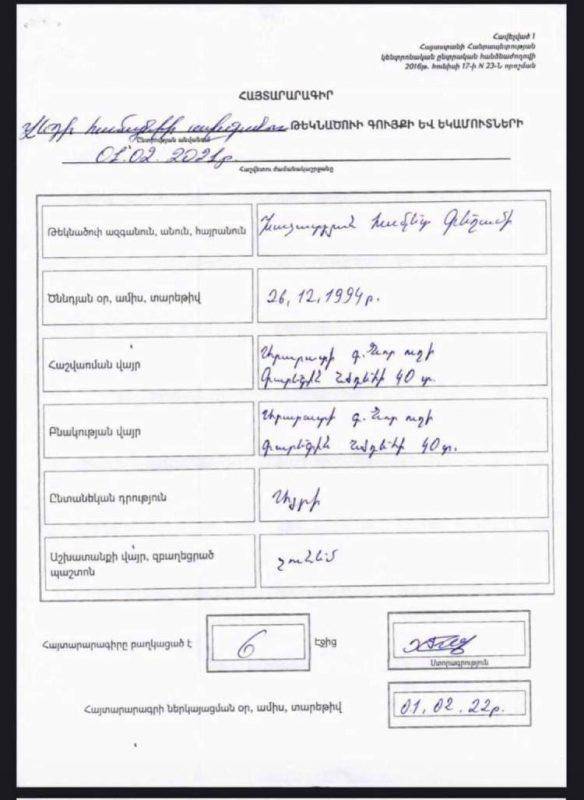 Հավելված 1
Հայաստանի Հանրապետության
կենտրոնական ընտրական հանձնաժողովի
2016թ. հունիսի 17-ի N 23-Ն որոշման
ՀԱՅՏԱՐԱՐԱԳԻՐ
Վեդի համայնքի ավագանու ԹԵԿՆԱԾՈՒԻ ԳՈՒՅՔԻ ԵՎ ԵԿԱՄՈՒՏՆԵՐԻ
Ընտրության անվանումը
01.02.2021թ
Հաշվետու ժամանակաշրջանը
Թեկնածուի ազգանուն, անուն, հայրանուն
Խաչատրյան
Ծննդյան օր, ամիս, տարեթիվ
26,12,1994թ.
Հաշվառման վայր
Արարատի գ. Նոր ուղի
Գարեգին Նժդեհի 40 տ.
Բնակության վայր
Արարատի գ. Նոր ուղի
Գարեգին Նժդեհի 40 տ.
Ընտանեկան դրություն
Այրի
Աշխատանքի վայր, զբաղեցրած
պաշտոն
չունեմ
Հայտարարագիրը բաղկացած է
6
էջից
Ստորագրություն
Հայտարարագրի ներկայացման օր, ամիս, տարեթիվ
01.02.22թ.